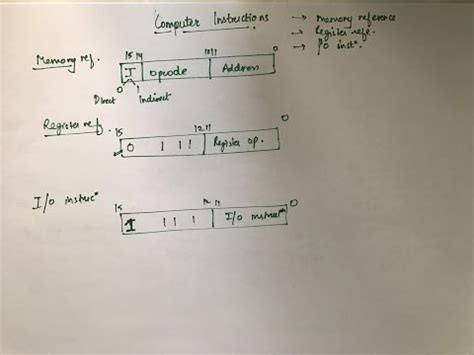 Computer Instructions
→ Memory reference
→ Register refe.
→ I/O instⁿ.
Memory ref.
15 14 12 11 0
I opcode Address
0 1
Direct Indirect
Register ref.
15 12 11 0
0 1 1 1 Register op.
I/O instrucⁿ
15 12 11 0
1 1 1 1 I/O instrucⁿ